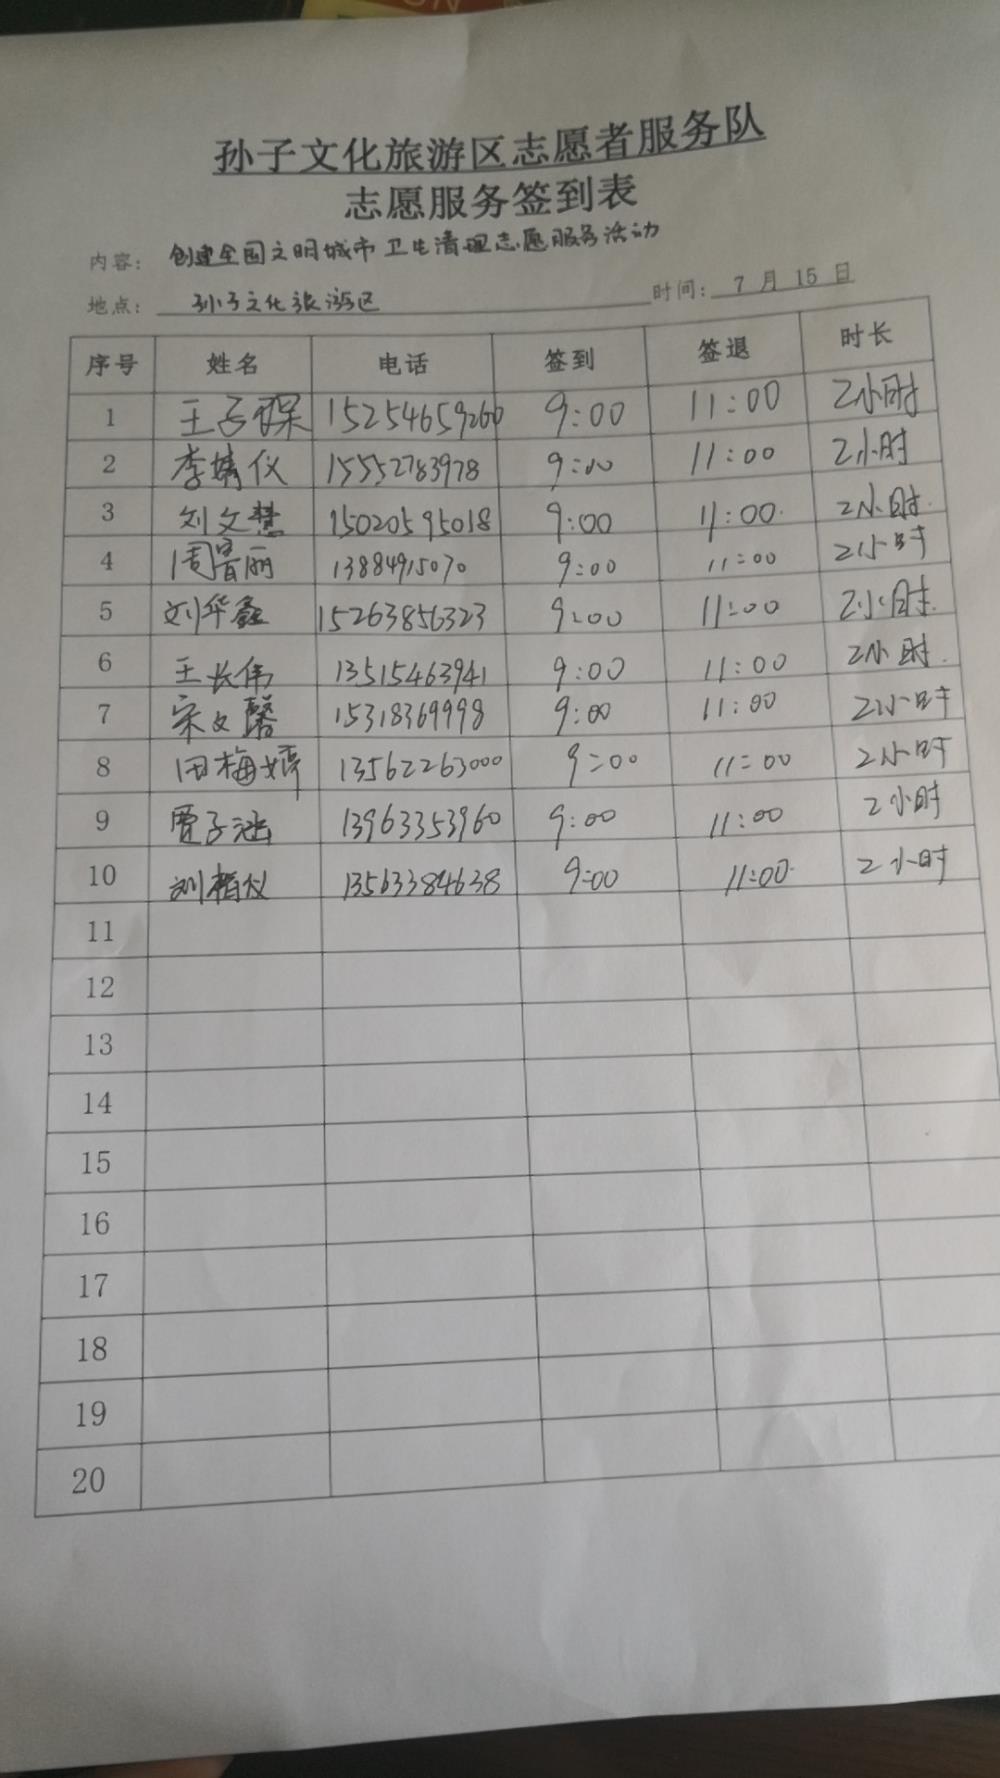 孙子文化旅游区志愿者服务队
志愿服务签到表
内容：创建全国文明城市卫生清理志愿服务活动
地点：孙子文化旅游区 时间：7月15日
序号 姓名 电话 签到 签退 时长
1 王子琛 15254659260 9:00 11:00 2小时
2 李婧仪 15552783978 9:00 11:00 2小时
3 刘文慧 15020595018 9:00 11:00 2小时
4 周丽 13884915070 9:00 11:00 2小时
5 刘华鑫 15263856323 9:00 11:00 2小时
6 王长伟 13515463941 9:00 11:00 2小时
7 宋文馨 15318369998 9:00 11:00 2小时
8 田梅婷 13562263000 9:00 11:00 2小时
9 贾子涵 13963353960 9:00 11:00 2小时
10 刘仪 13563384638 9:00 11:00 2小时
11
12
13
14
15
16
17
18
19
20